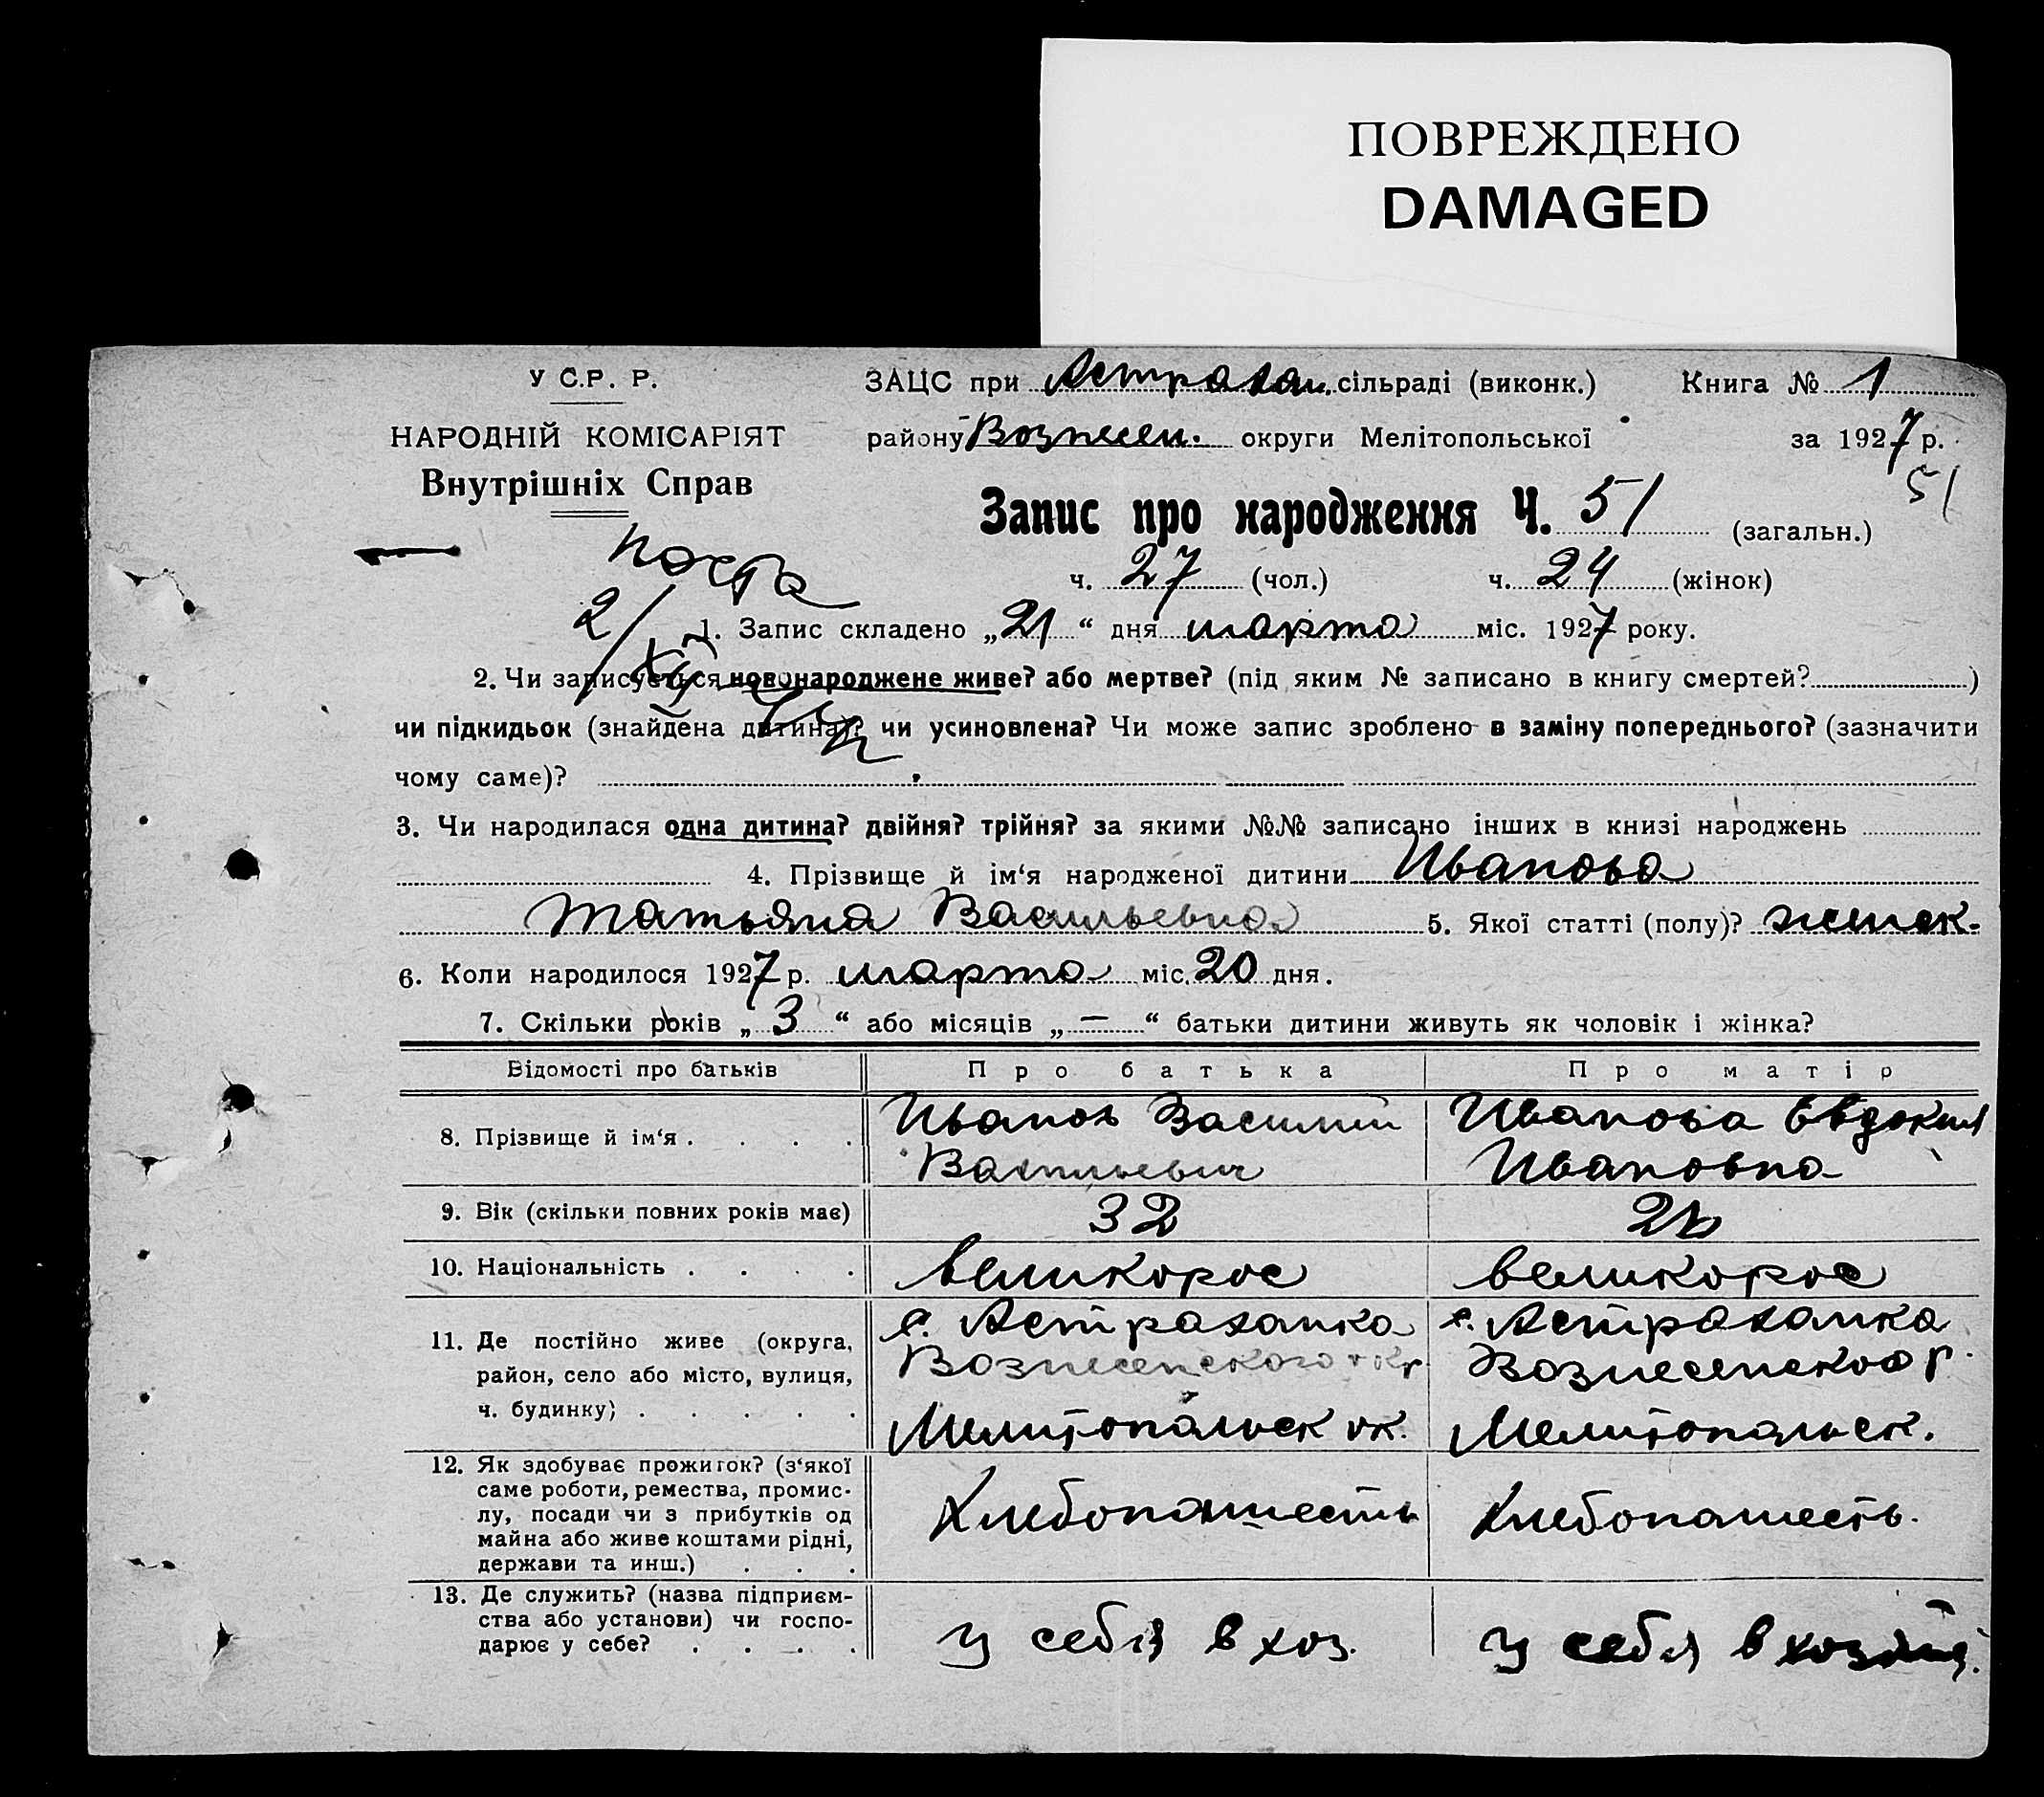 ПОВРЕЖДЕНО
DAMAGED
У С.Р. Р.
НАРОДНІЙ КОМІСАРІЯТ
Внутрішніх Справ
ЗАЦС при Астрахан. сільраді (виконк.) Книга № 1
району Вознесен. округи Мелітопольської за 1927 р.
51
Запис про народження Ч. 51 (загальн.)
ч. 27 (чол.) ч. 24 (жінок)
2/XII
1. Запис складено „21“ дня марта міс. 1927 року.
2. Чи записується новонароджене живе? або мертве? (під яким № записано в книгу смертей? )
чи підкидьок (знайдена дитина)? чи усиновлена? Чи може запис зроблено в заміну попереднього? (зазначити
чому саме)?
3. Чи народилася одна дитина? двійня? трійня? за якими №№ записано інших в книзі народжень
4. Прізвище й ім‘я народженої дитини Иванова
Татьяна Васильевна 5. Якої статті (полу)? женск.
6. Коли народилося 1927 р. марта міс. 20 дня.
7. Скільки років „3“ або місяців „—“ батьки дитини живуть як чоловік і жінка?
Відомості про батьків Про батька Про матір
8. Прізвище й ім‘я . . . . Иванов Василий Иванова Евдокия
Васильевич Ивановна
9. Вік (скільки повних років має) 32
10. Національність . . . . великорос великорос
11. Де постійно живе (округа, с. Астраханка с. Астраханка
район, село або місто, вулиця, Вознесенского Вознесенского р.
ч. будинку) . . . . . Мелитопольск ок. Мелитопольск.
12. Як здобуває прожиток? (з‘якої
саме роботи, ремества, промис-
лу, посади чи з прибутків од Хлебопашесть Хлебопашесть.
майна або живе коштами рідні,
держави та инш.) . . .
13. Де служить? (назва підприєм-
ства або установи) чи госпо- у себя в хоз. у себя в
дарює у себе? . . . .